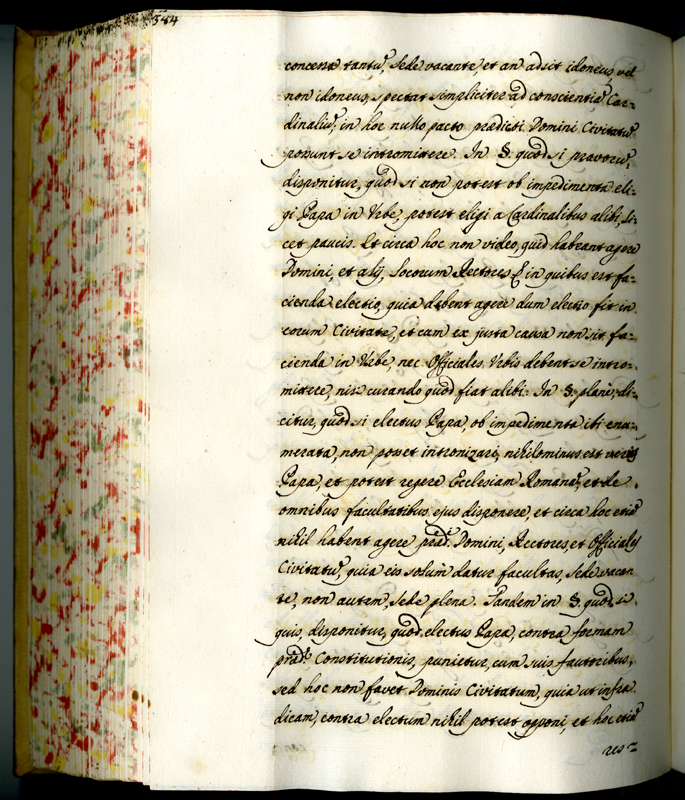 384
concessa tantũ, Sede vacante, et an adsit idoneus, vel
non idoneus, spectat simpliciter ad conscientiã Car=
dinaliũ; in hoc nullo pacto prædicti Domini Civitatũ
possunt se intromittere. In §. quod si pravorũ,
disponitur, quod si non potest ob impedimenta eli=
gi Papa in Urbe, potest eligi a Cardinalibus alibi, li=
cet paucis. Et circa hoc non video, quid habeant agere
Domini, et alij, locorum Rectores in quibus est fa=
cienda electio, quia debent agere dum electio fit in
eorum Civitate, et cum ex justa causa non sit fa=
cienda in Urbe, nec Officiales Urbis debent se intro=
mittere, nisi curando quod fiat alibi: In §. planè, di=
citur, quod si electus Papa, ob impedimenta ibi enu=
merata, non posset intronizari, nihilominus est verus
Papa, et potest regere Ecclesiam Romanã, et de
omnibus facultatibus ejus disponere, et circa hoc etiã
nihil habent agere præd.ⁱ Domini, Rectores, et Officiales
Civitatũ, quia eis solùm datur facultas, Sede vacan
te, non autem, sede plena. Tandem in §. quod si
quis, disponitur, quod electus Papa, contra formam
præd.ᵉ Constitutionis, punietur, cum suis fautoribus,
sed hoc non favet Dominis Civitatum, quia ut infra
dicam, contra electum nihil potest opponi, et hoc etiã
res=